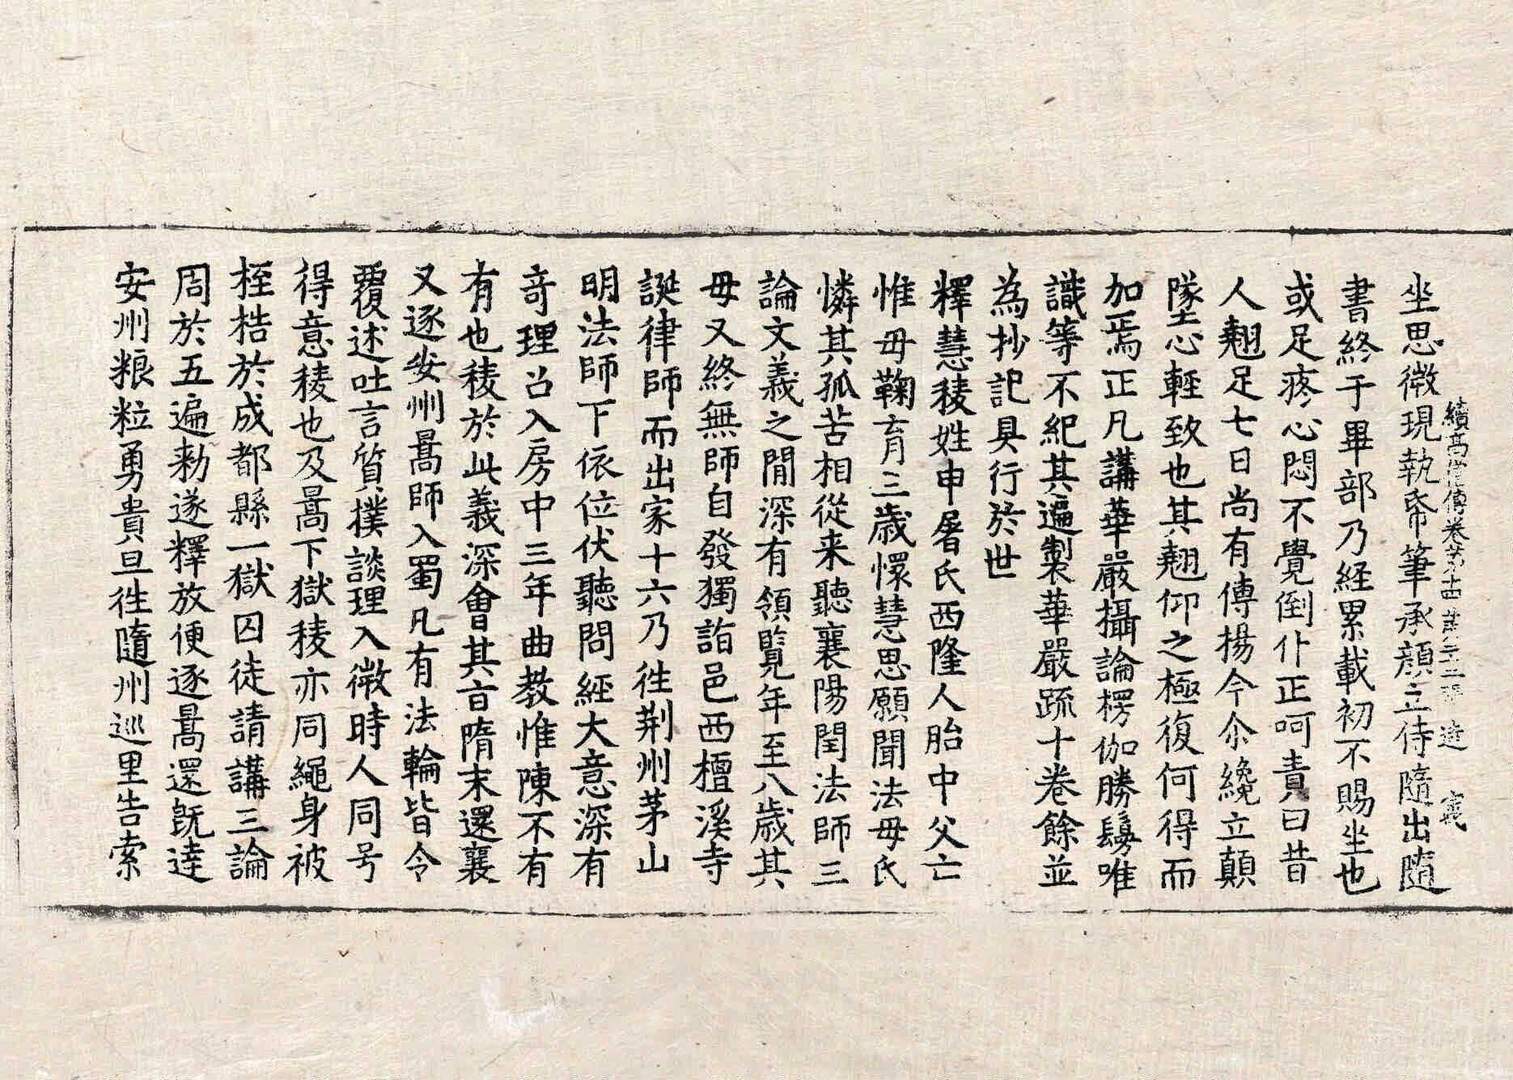 續高僧傳卷苐十四 苐二十三張 逵
坐思微現執帋筆承顔立侍隨出隨
書終于畢部乃経累載初不賜坐也
或足疼心悶不覺倒仆正呵責曰昔
人翹足七日尚有傳揚今尒纔立顛
墜心輕致也其翹仰之極復何得而
加焉正凡講華嚴攝論楞伽勝鬘唯
識等不紀其遍製華嚴疏十卷餘並
為抄記具行於世
釋慧稜姓申屠氏西隆人胎中父亡
惟母鞠育三歲懷慧思願聞法母氏
憐其孤苦相從来聽襄陽閏法師三
論文義之閒深有領覧年至八歲其
母又終無師自發獨詣邑西檀溪寺
誕律師而出家十六乃徃荆州茅山
明法師下依位伏聽問經大意深有
竒理召入房中三年曲教惟陳不有
有也稜於此義深會其㫖隋末還襄
又逐安州暠師入蜀凡有法輪皆令
覆述吐言質撲談理入微時人同号
得意稜也及暠下獄稜亦同繩身被
桎梏於成都縣一獄囚徒請講三論
周於五遍勑遂釋放便逐暠還旣達
安州粮粒勇貴旦徃隨州巡里告索